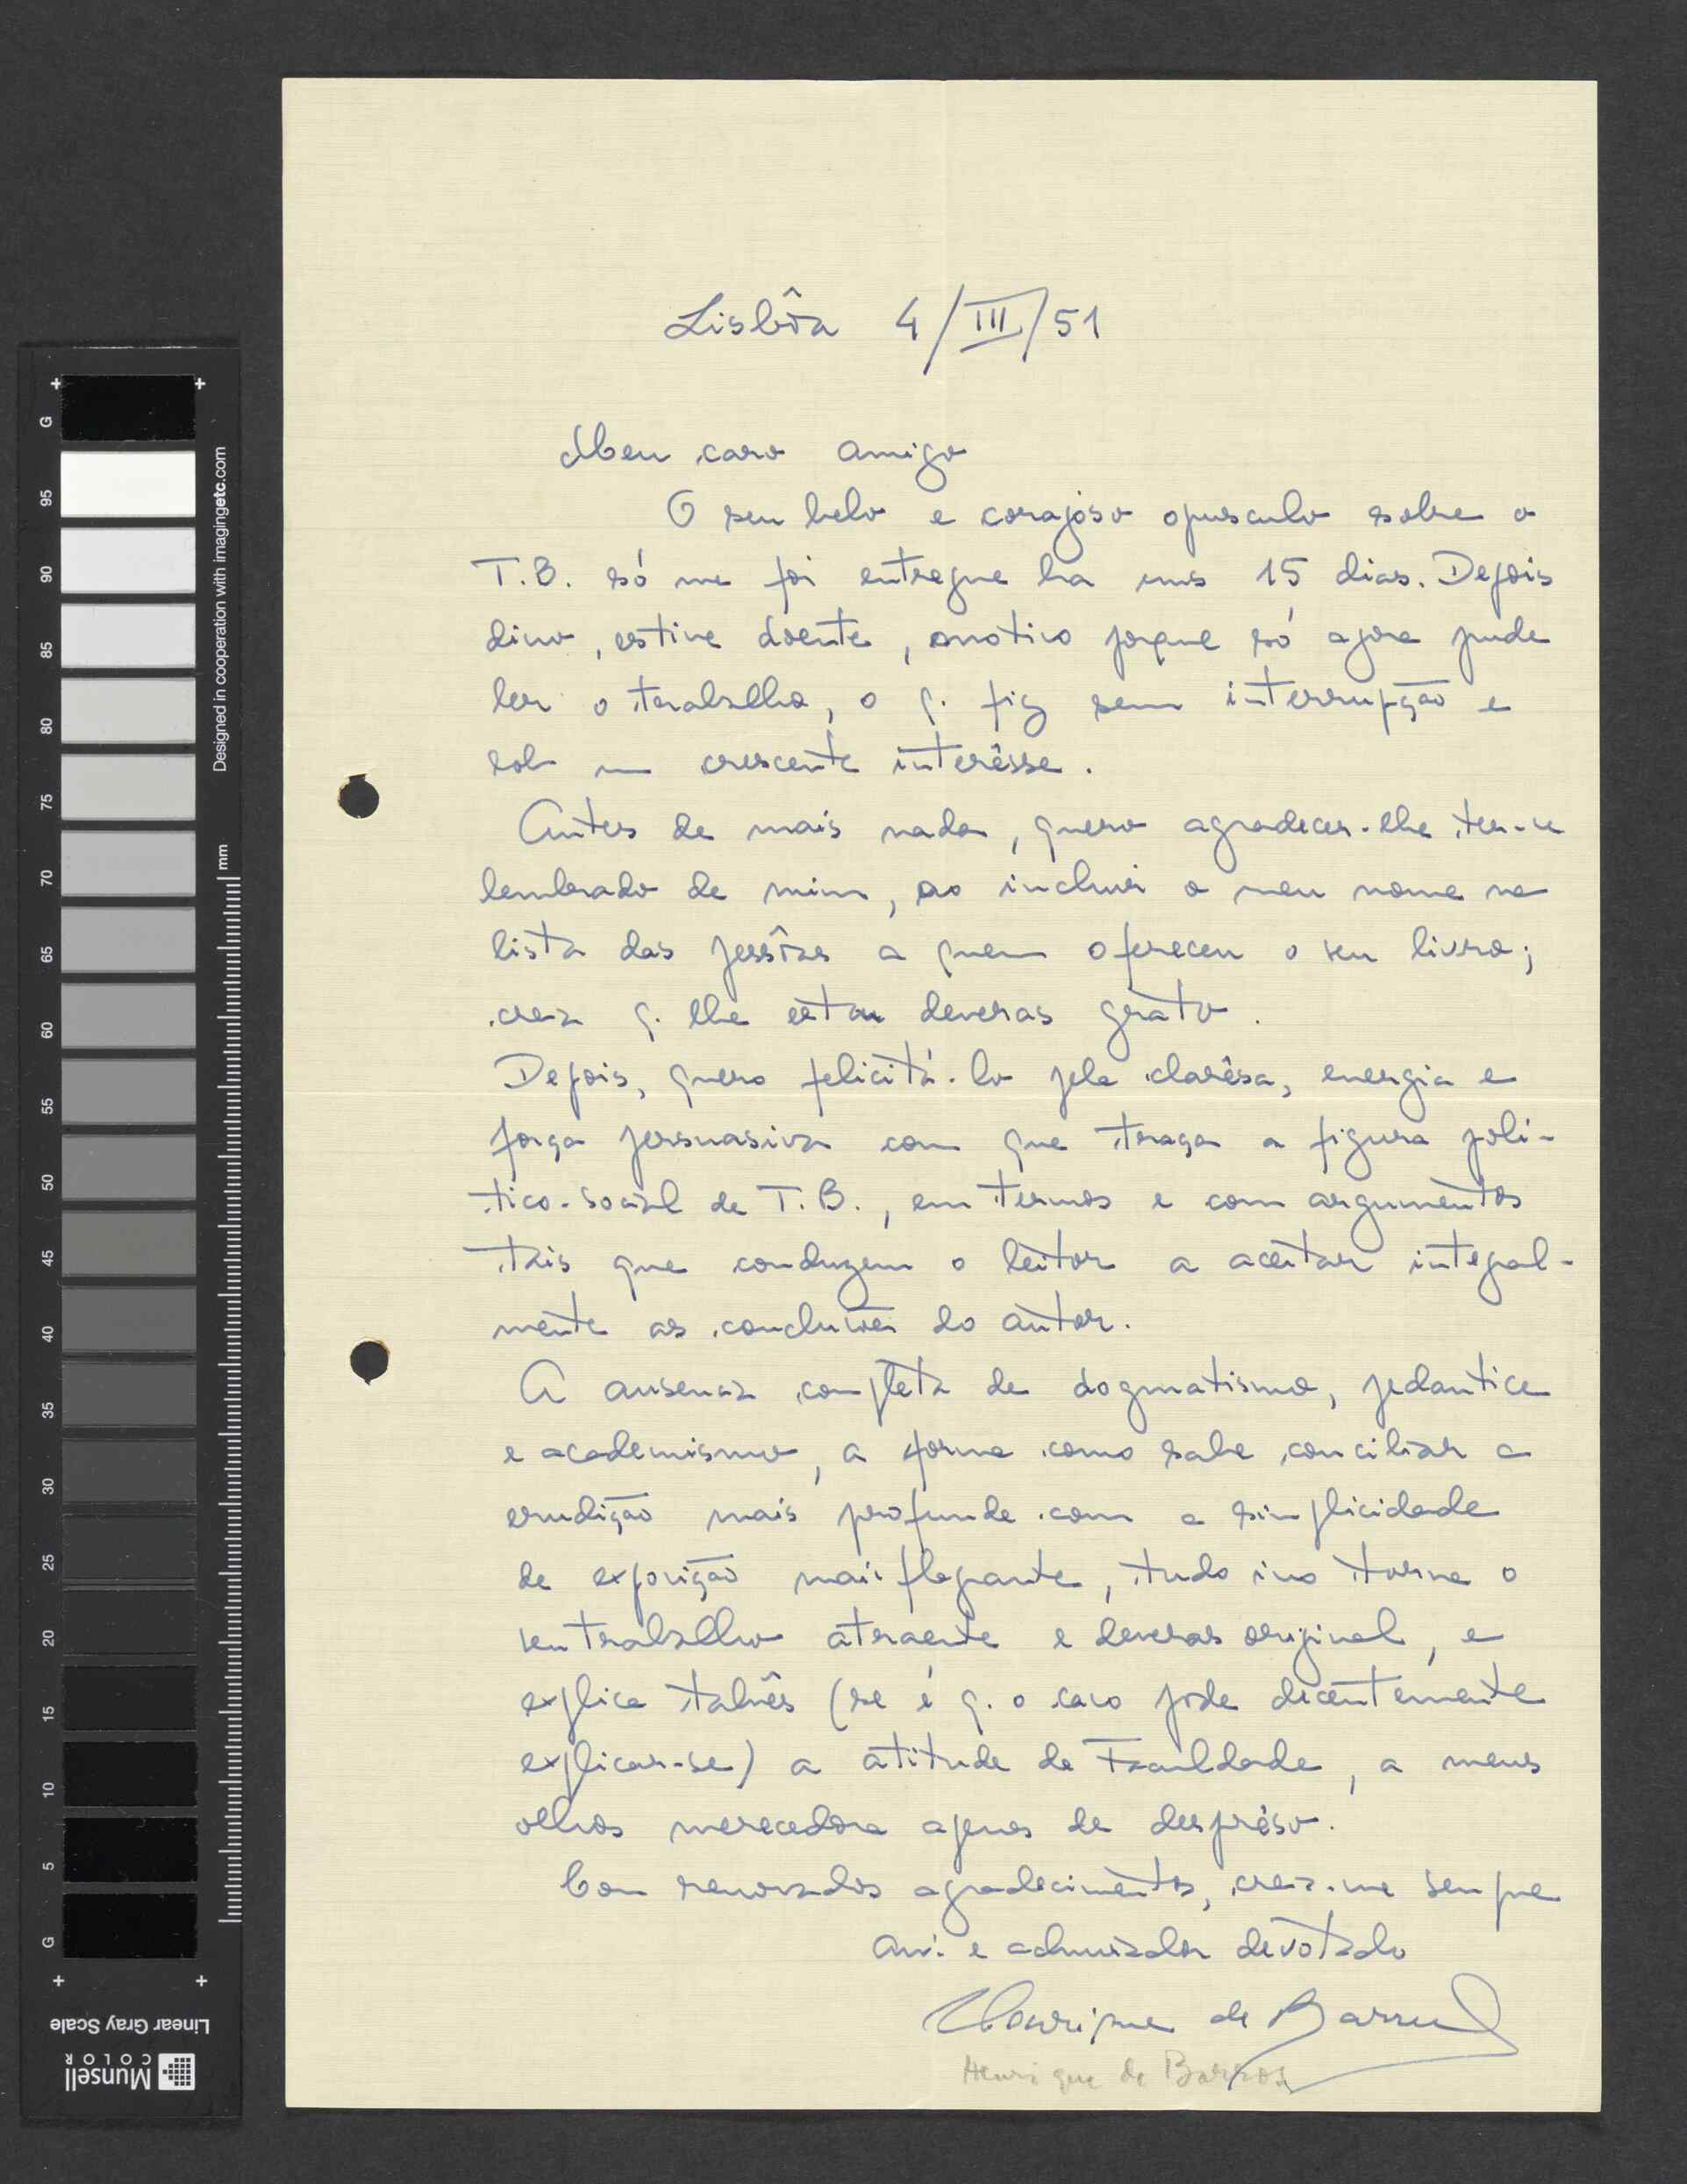 Lisbôa 4/III/51
Meu caro amigo
O seu belo e corajoso opusculo sobre o
T.B. só me foi entregue ha uns 15 dias. Depois
disso, estive doente, motivo porque só agora pude
ler o trabalho, o q. fiz sem interrupção e
sob um crescente interêsse.
Antes de mais nada, quero agradecer-lhe ter-se
lembrado de mim, ao incluir o meu nome na
lista das pessôas a quem ofereceu o seu livro;
creia q. lhe estou deveras grato.
Depois, quero felicitá-lo pela clarêsa, energia e
força persuasiva com que traça a figura poli-
tico-social de T.B., em termos e com argumentos
tais que conduzem o leitor a aceitar integral-
mente as conclusões do autor.
A ausencia completa de dogmatismo, pedantice
e academismo, a forma como sabe conciliar a
erudição mais profunda com a simplicidade
de exposição mais flagrante, tudo isso torna o
seu trabalho atraente e deveras original, e
explica talvês (se é q. o caso pode decentemente
explicar-se) a atitude da Faculdade, a meus
olhos merecedora apenas de desprêso.
Com renovados agradecimentos, creia-me sempre
am.º e admirador devotado
Henrique de Barros
Henrique de Barros
G
95
90
85
80
75
70
65
60
55
50
45
40
35
30
25
20
15
10
5
G
mm
Designed in cooperation with imagingetc.com
Linear Gray Scale
Munsell
COLOR